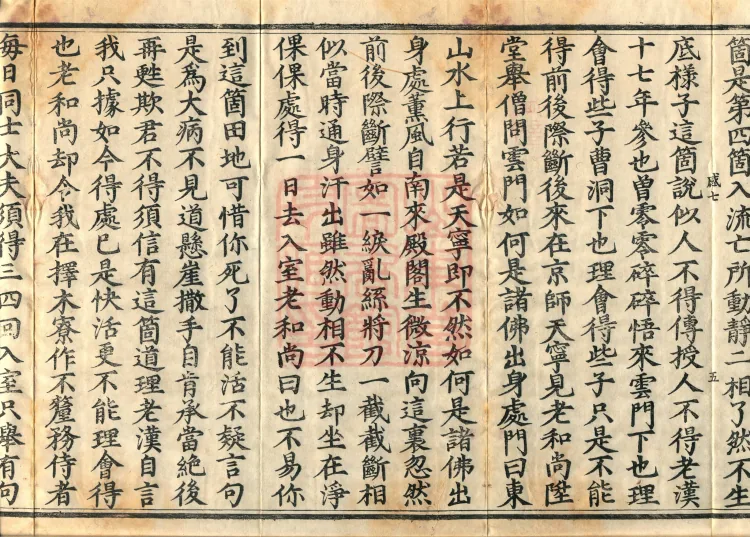 箇是第四箇入流亡所動靜二相了然不生
底樣子這箇說似人不得傳授人不得老漢
十七年參也曽零零碎碎悟來雲門下也理
會得些子曹洞下也理會得些子只是不能
得前後際斷後來在京師天寧見老和尚陞
堂舉僧問雲門如何是諸佛出身處門曰東
山水上行若是天寧即不然如何是諸佛出
身處薰風自南來殿閣生微涼向這裏忽然
前後際斷譬如一綟亂絲將刀一截截斷相
似當時通身汗出雖然動相不生却坐在淨
倮倮處得一日去入室老和尚曰也不易你
到這箇田地可惜你死了不能活不疑言句
是為大病不見道懸崖撒手自肯承當絕後
再甦欺君不得須信有這箇道理老漢自言
我只據如今得處已是快活更不能理會得
也老和尚却令我在擇木寮作不釐務侍者
每日同士大夫須得三四回入室只舉有句
咸七
五